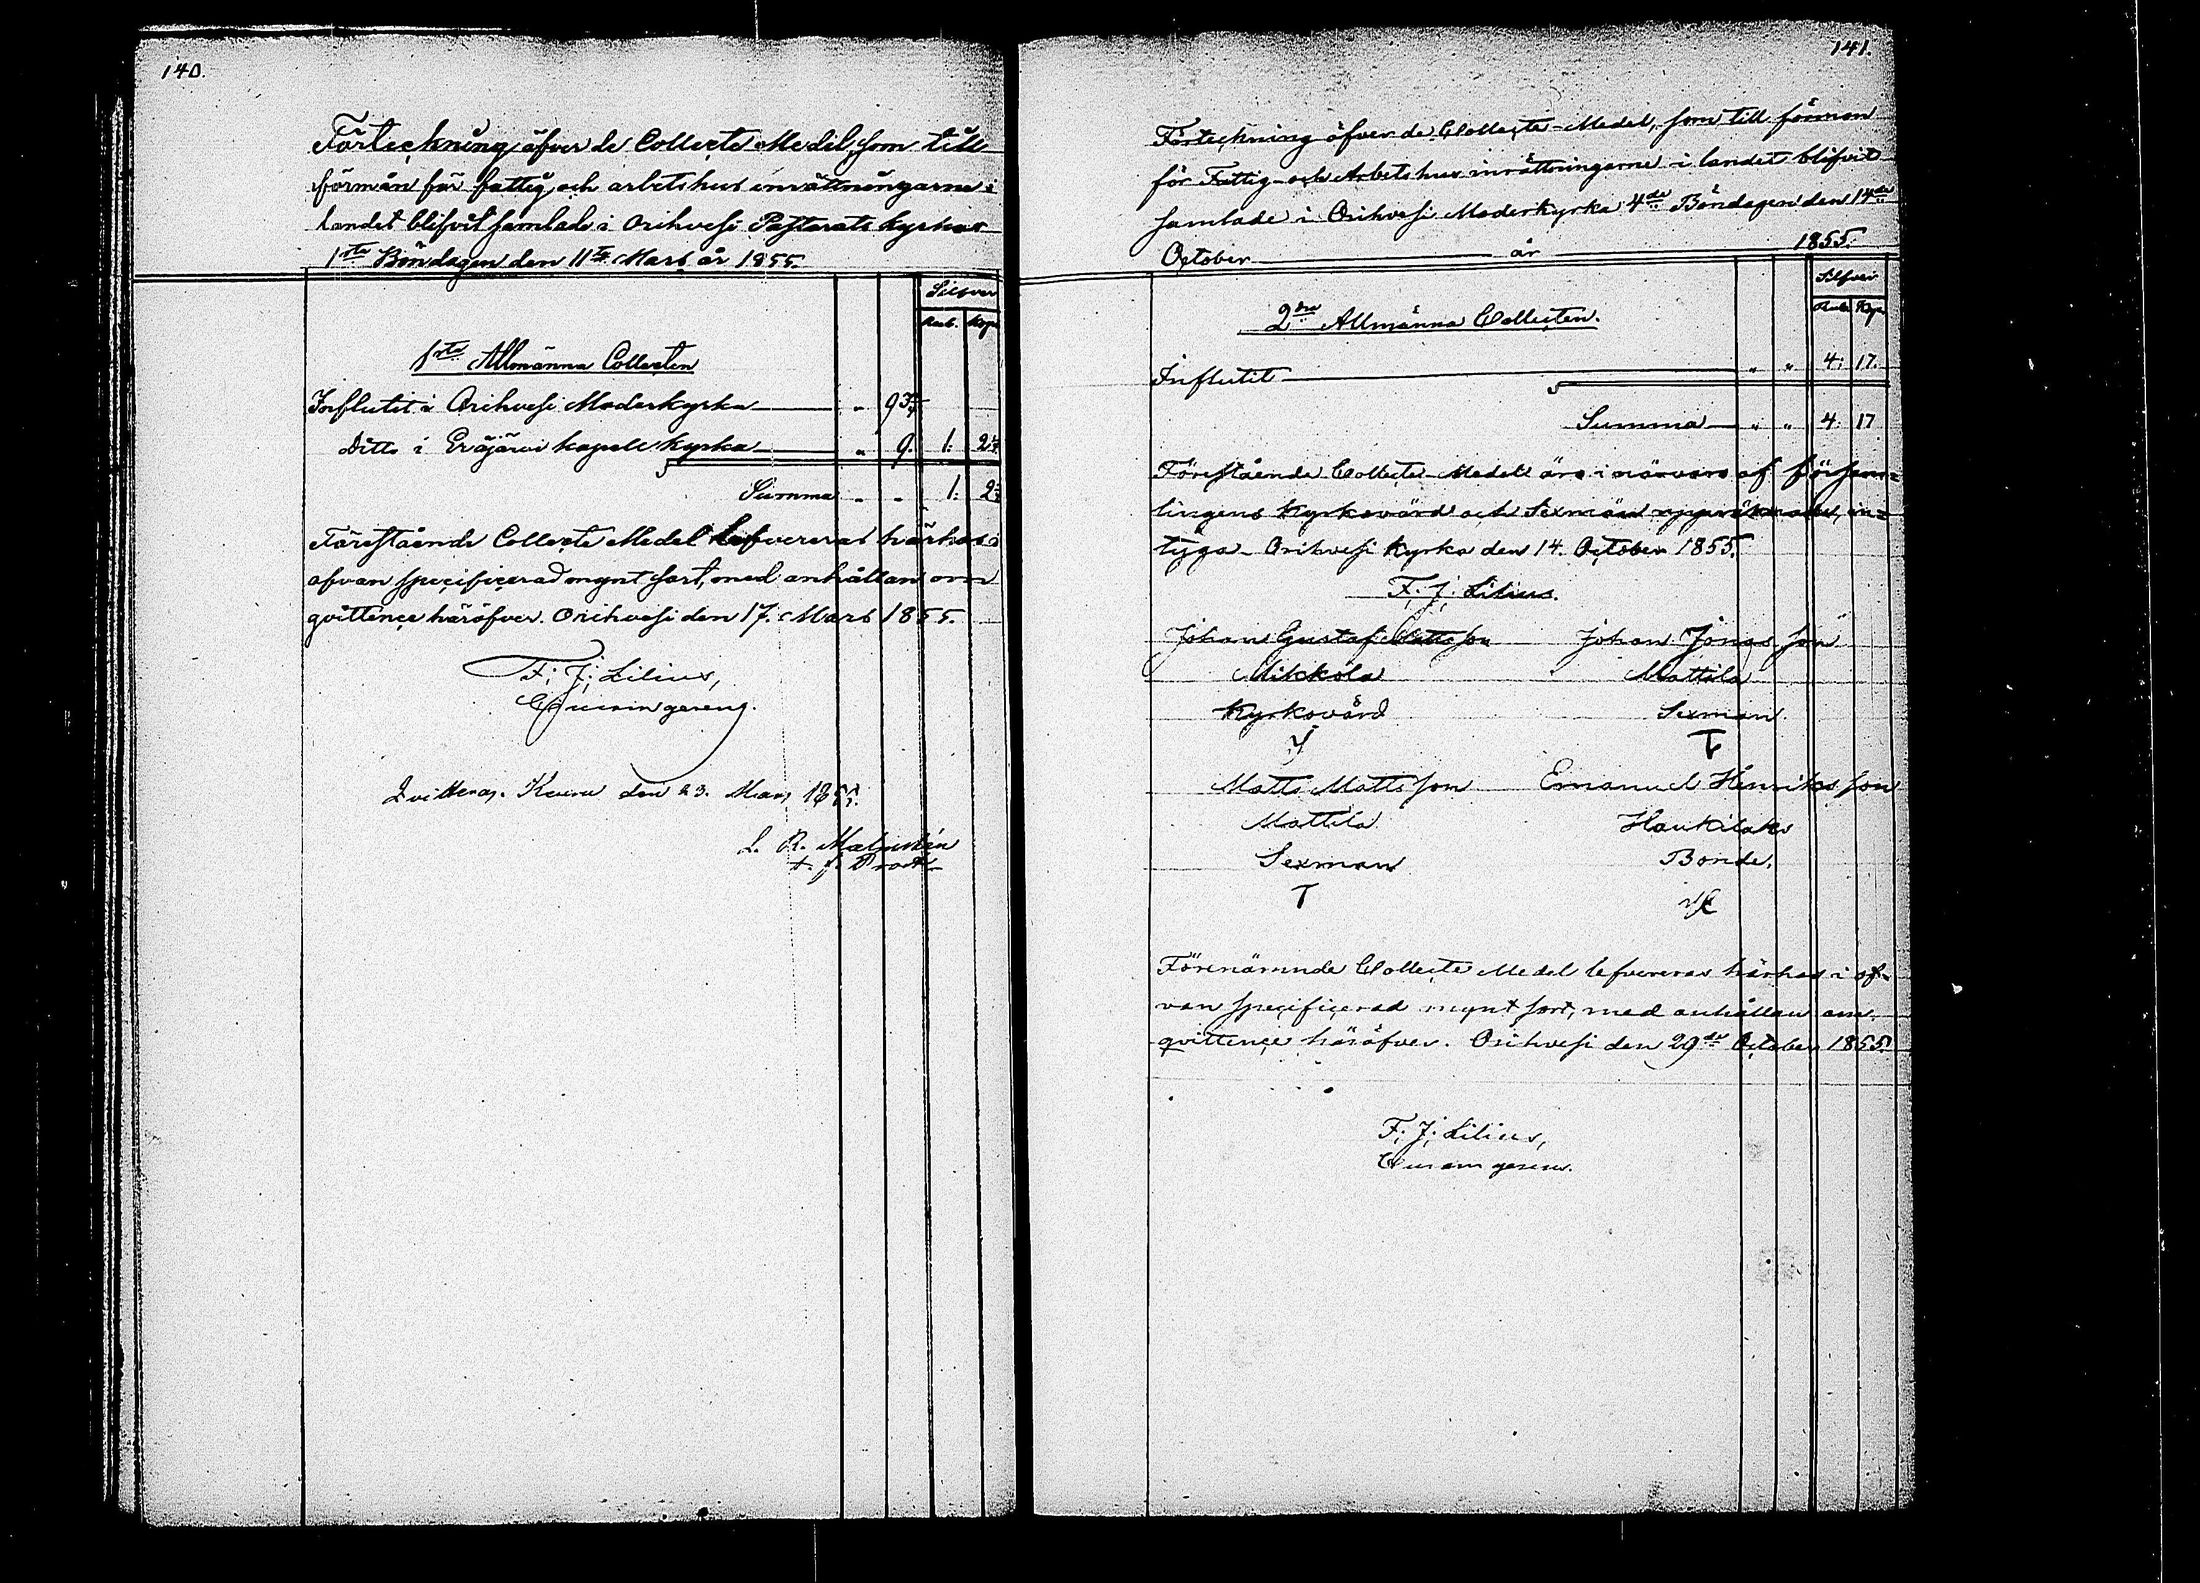 140.
Förteckning öfver de Collecte Medel, som till
förmån för fattig och arbetshus inrättningarne i
landet blifvit samlade i Orihvesi Pastorats kyrkor
1sta Böndagen den 11te Mars år 1855.
Silfver
Rub. Kop.
1sta Allmänna Collecten
Influtit i Orihvesi Moderkyrka " 93¾
Ditto i Eräjärvi kapell kyrka " 9. 1: 2¾
Summa " " 1: 2¾
Förestående Collecte Medel lefvereras härhos i
ofvan specificerad mynt sort, med anhållan om
qvittence häröfver. Orihvesi den 17. Mars 1855.
F. J. Lilius,
Curam gerens.
Qvitteras. Kuru den 23. Mars 1855.
L. R. Malmstén
t. f. Prost
141.
Förteckning öfver de Collecte-Medel, som till förmon
för Fattig- och Arbetshus inrättningarne i landet blifvit
samlade i Orihvesi Moderkyrka 4de Böndagen den 14de
October år 1855.
Silfver
Rub. Kop.
2dra Allmänna Collecten.
Influtit " " 4: 17.
Summa " " 4: 17
Förestående Collecte-Medel äro i närvaro af Försam-
lingens Kyrkovärd och Sexmän uppräknade, in-
tyga. Orihvesi Kyrka den 14. October 1855.
F. J. Lilius.
Johan Gustaf Mattsson Johan Jonasson
Mikkola Mattila
Kyrkovärd Sexman.
Matts Mattsson Emanuel Henriksson
Mattila Haukilaks
Sexman Bonde.
T
Förenämnde Collecte Medel lefvereras härhos i of-
van specificerad mynt sort, med anhållan om
qvittence häröfver. Orihvesi den 29de October 1855.
F. J. Lilius,
Curam gerens.